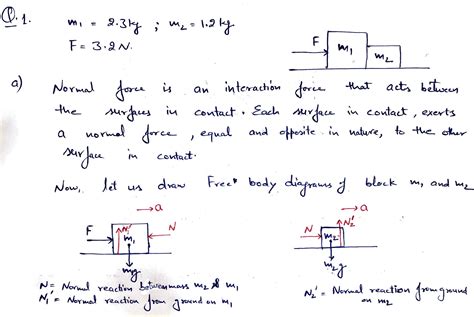 Q.1.
m₁ = 2.3kg ; m₂ = 1.2kg
F = 3.2N.
F m₁ m₂
a) Normal force is an interaction force that acts between
the surfaces in contact. Each surface in contact, exerts
a normal force, equal and opposite in nature, to the other
surface in contact.
Now, let us draw Free body diagrams of block m₁ and m₂
→a
F N₁' m₁ N
m₁g
→a
N m₂ N₂'
m₂g
N = Normal reaction between mass m₂ & m₁
N₁' = Normal reaction from ground on m₁
N₂' = Normal reaction from ground
on m₂